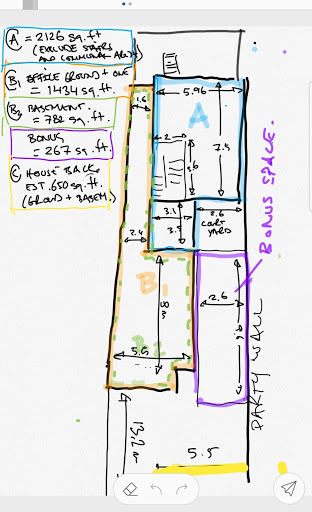 A = 2126 sq.ft
(EXCLUDE STAIRS
AND COMMUNAL AREA)
B1 OFFICE GROUND + ONE
= 1434 sq.ft.
B2 BASEMENT.
= 782 sq.ft.
BONUS
= 267 sq.ft.
C HOUSE BACK
EST. 650 sq.ft.
(GROUND + BASEM.)
1.6
5.96
A
7.5
2
3.6
3.1
2.6
3.5
CART
YARD
2.4
BONUS SPACE.
B1
8.3
2.6
B2
5.5
PARTY WALL
13.2 m
5.5